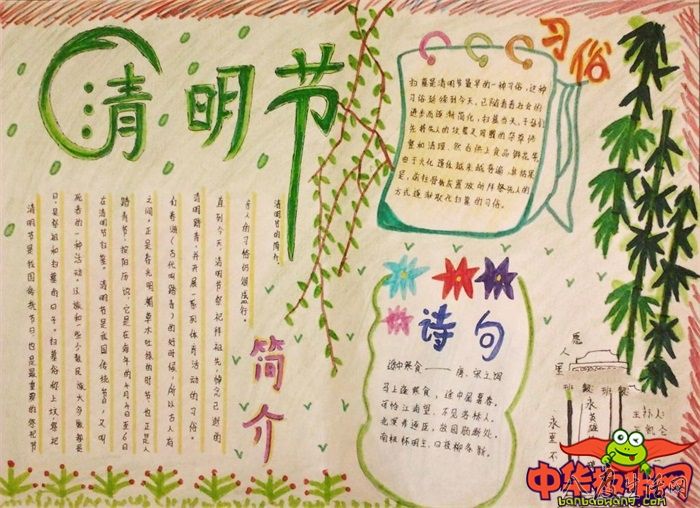 清明节
清明节是我国传统节日也是最重要的祭祀节
日,是祭祖和扫墓的日子。扫墓俗称上坟祭祀
死者的一种活动。汉族和一些少数民族大多数都是
在清明节扫墓。清明节是我国传统节,又叫
踏青节按阳历说,它是在每年的4月4日至6日
之间,正是春光明媚草木吐绿的时节也正是人
们春游(古代叫踏青)的好时候,所以古人有
清明踏青,并开展一系列体育活动的习俗。
直到今天,清明节祭祀拜祖先,悼念已逝的
亲人的习俗仍很盛行。
清明节的简介。
简介
习俗
扫墓是清明节最早的一种习俗,这种
习俗延续到今天,已随着社会的
进步而逐渐简化,扫墓当天,子孙们
先将先人的坟墓及周围的杂草修
整和清理,然后供上食品鲜花等,
由于火化遗体越来越普遍,其结果
是,前往骨灰置放的拜祭先人的
方式逐渐取代扫墓的习俗。
诗句
途中寒食——唐、宋之问
马上逢寒食,途中属暮春。
可怜江南望,不见洛桥人。
北 逐臣,故园肠断处。
南极怀明主,日夜柳条新。
愿人里
永垂不
永英雄
班级
中华 网
banbaowang.com